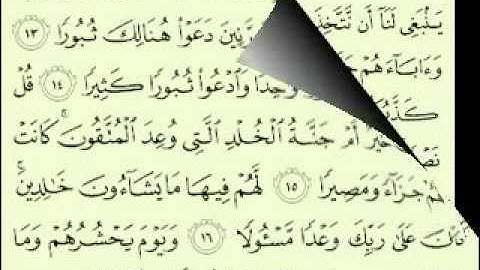 يَنۢبَغِى لَنَآ أَن نَّتَّخِذَ دَعَوْا۟ هُنَالِكَ ثُبُورًا ١٣
وَءَابَآءَهُمْ وَٰحِدًا وَٱدْعُوا۟ ثُبُورًا كَثِيرًا ١٤ قُلْ
خَيْرٌ أَمْ جَنَّةُ ٱلْخُلْدِ ٱلَّتِى وُعِدَ ٱلْمُتَّقُونَ كَانَتْ
لَهُمْ جَزَآءً وَمَصِيرًا ١٥ لَّهُمْ فِيهَا مَا يَشَآءُونَ خَٰلِدِينَ
كَانَ عَلَىٰ رَبِّكَ وَعْدًا مَّسْـُٔولًا ١٦ وَيَوْمَ يَحْشُرُهُمْ وَمَا